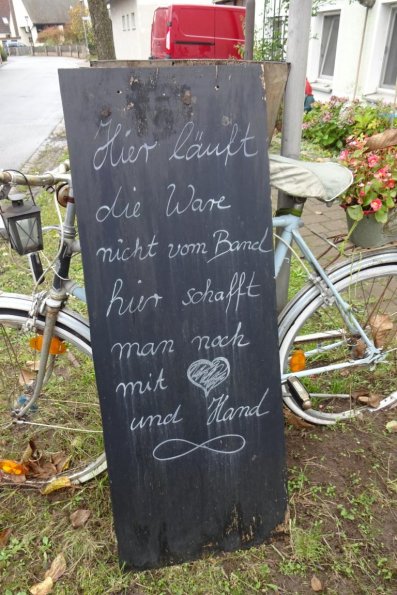 Hier läuft
die Ware
nicht vom Band
hier schafft
man noch
mit ♡
und Hand